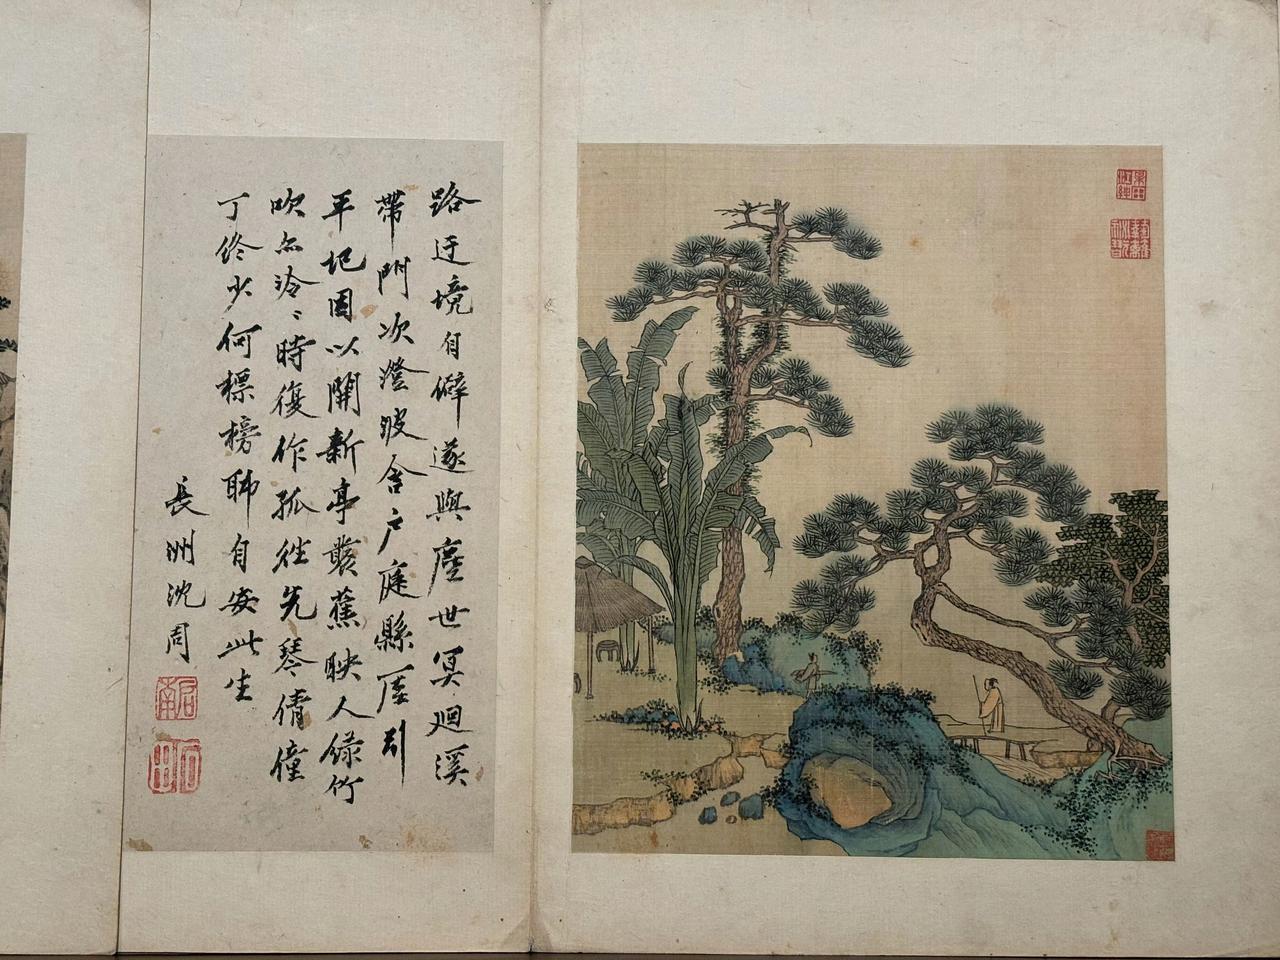 路迂境自僻遂與塵世冥迴溪
帶門次澄波含户庭縣厓引
平圯因以開新亭叢蕉映人綠竹
吹亦泠〻時復作孤往先琴倩僮
丁少何標榜聊自安此生
長洲沈周
啟南
石田